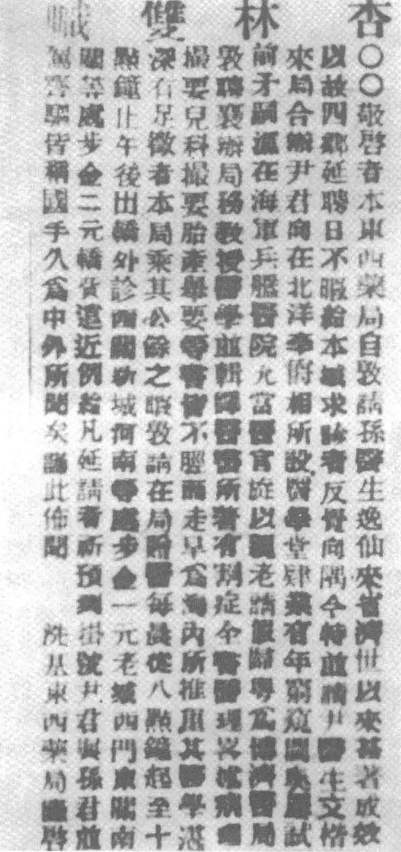 杏林雙幟
○○敬啓者本東西藥局自敦請孫醫生逸仙來省濟世以來甚著成效
以故四鄉延聘日不暇給本城求診者反覺向隅今特並請尹醫生文楷
來局合辦尹君向在北洋李傅相所設醫學堂肄業有年窮窺閫奧屢試
前矛嗣派在海軍兵艦醫院充當醫官旋以親老請假歸粵爲博濟醫局
敦聘襄辦局務教授醫學並輯譯醫書所著有割症全書醫理畧述病理
撮要兒科撮要胎產舉要等書皆不脛而走早爲海內所推重其醫學湛
深有足徵者本局乘其公餘之暇敦請在局贈醫每晨從八點鐘起至十
點鐘止午後出轎外診西關新城河南等處步金一元老城西門東關南
關等處步金二元轎費遠近例給凡延請者祈預到掛號尹君與孫君並
駕齊驅皆稱國手久爲中外所聞矣謹此佈聞 冼基東西藥局謹啓